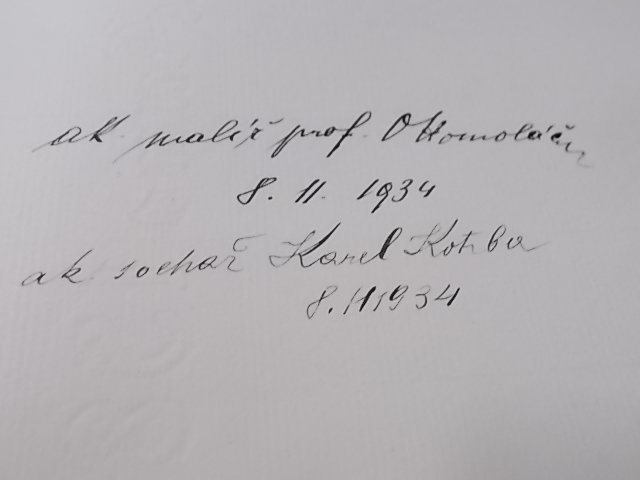 ak. malíř prof. O Homoláč
8. 11. 1934
ak. sochař Karel Kotrba
8. 11 1934